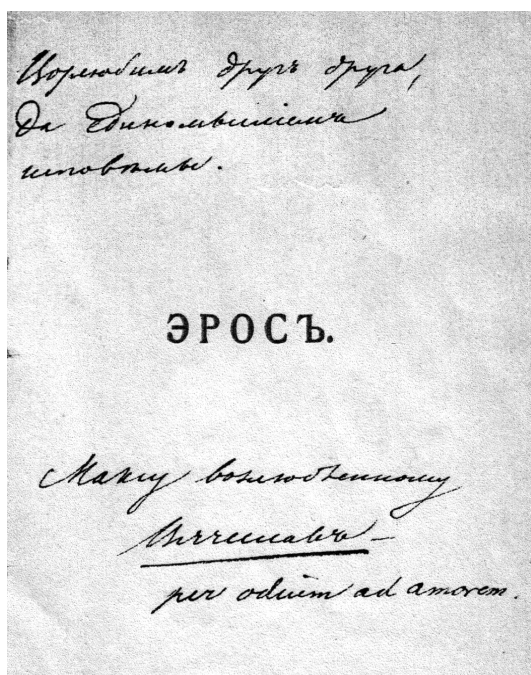 Возлюбимъ другъ друга,
да единомысліемъ
исповѣмы.
ЭРОСЪ.
Максу возлюбленному
Вячеславъ —
per odium ad amorem.